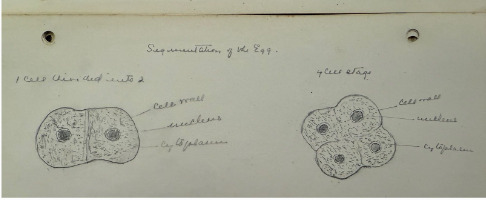 Segmentation of the Egg.
1 Cell divided into 2
Cell wall
nucleus
Cytoplasm
4 Cell stage
Cell wall
nucleus
Cytoplasm